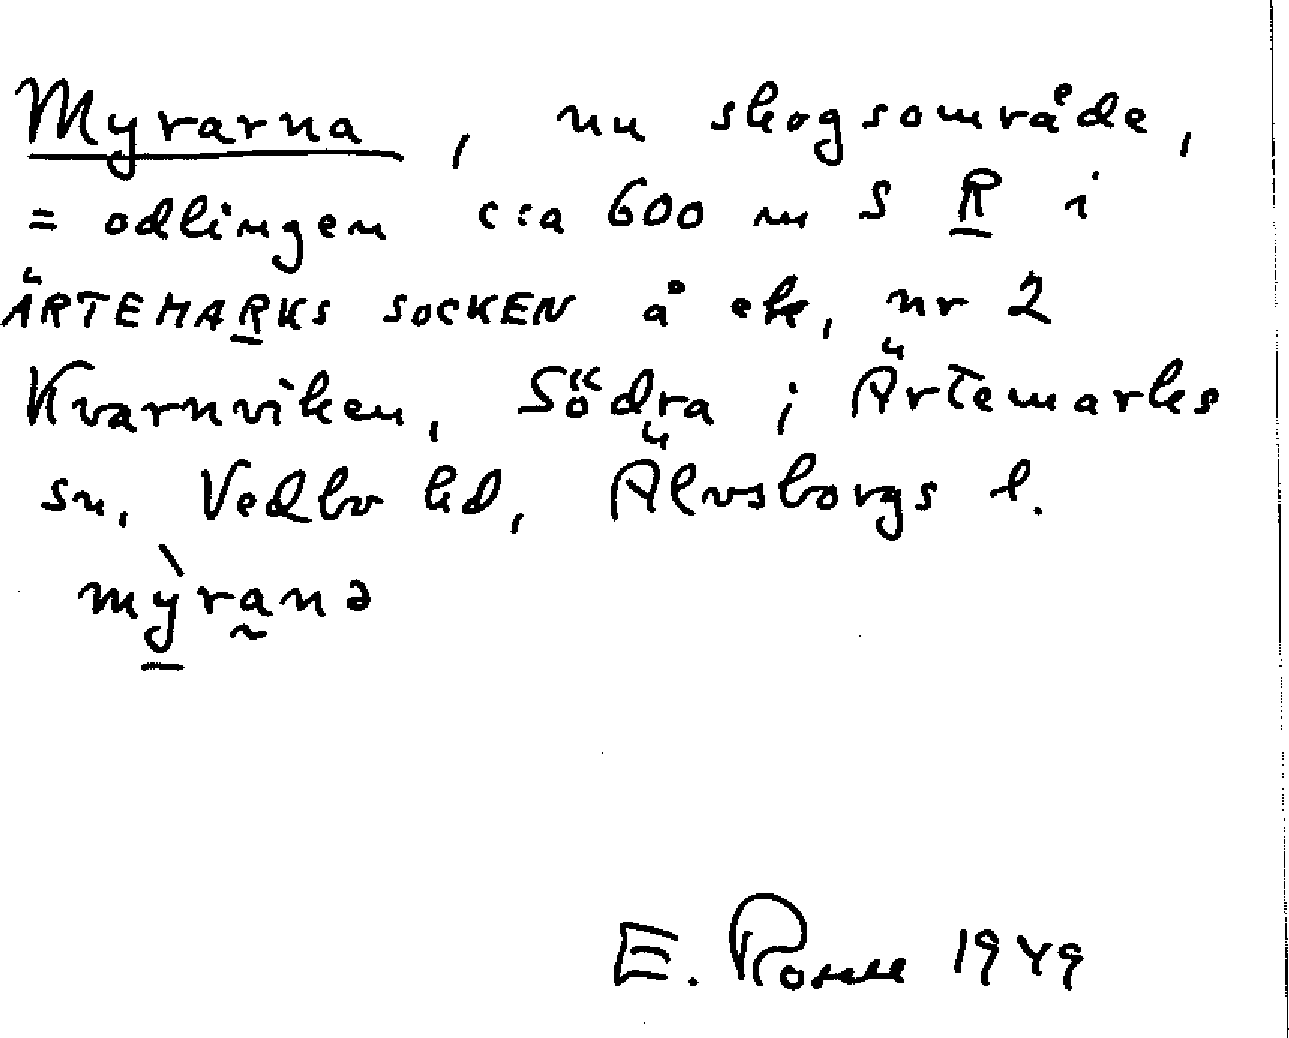 Myrarna, nu skogsområde,
= odlingen cca 600 m S R i
ÄRTEMARKS SOCKEN å ek, nr 2
Kvarnviken, Södra i Ärtemarks
sn, Vedbo hd, Älvsborgs l.
mỳranə
E. 1949